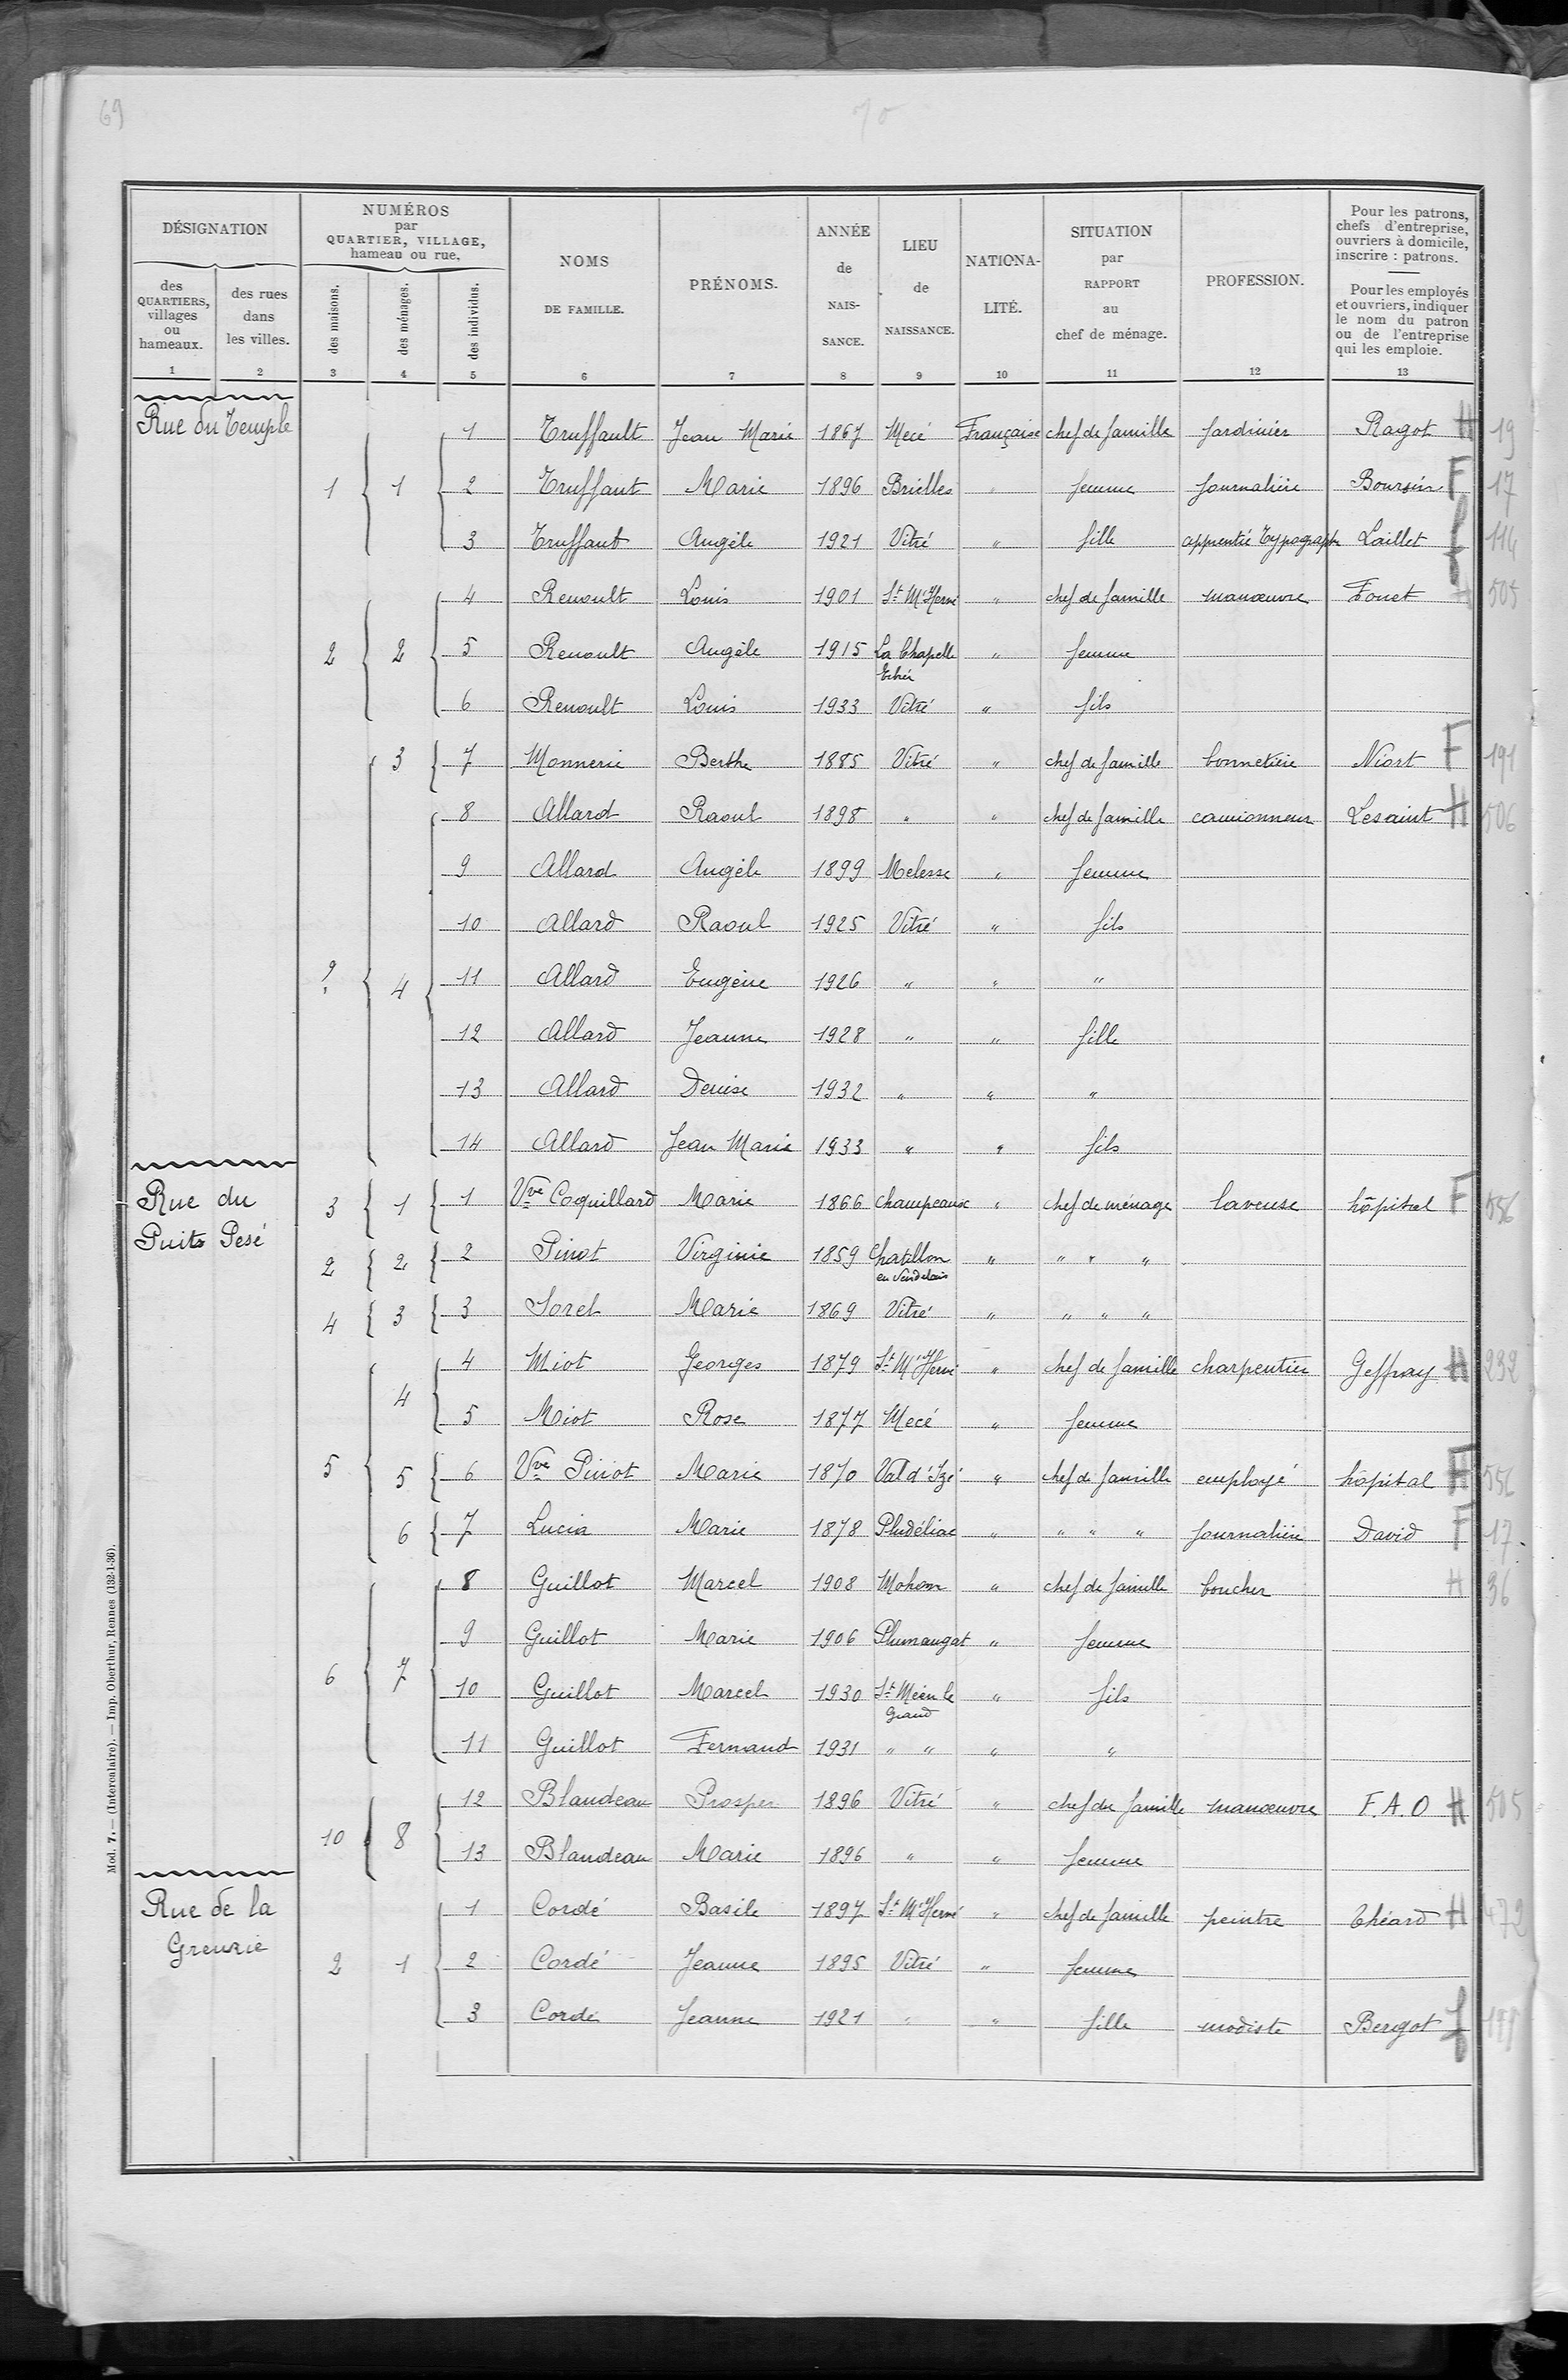 69
70
DÉSIGNATION
des QUARTIERS, villages ou hameaux.
des rues dans les villes.
NUMÉROS par QUARTIER, VILLAGE, hameau ou rue.
des maisons.
des ménages.
des individus.
NOMS DE FAMILLE.
PRÉNOMS.
ANNÉE de NAIS-SANCE.
LIEU de NAISSANCE.
NATIONA-LITÉ.
SITUATION par RAPPORT au chef de ménage.
PROFESSION.
Pour les patrons, chefs d'entreprise, ouvriers à domicile, inscrire : patrons.
Pour les employés et ouvriers, indiquer le nom du patron ou de l'entreprise qui les emploie.
1 2 3 4 5 6 7 8 9 10 11 12 13
Rue du Temple
1 Truffault Jean Marie 1867 Mecé Française chef de famille Jardinier Ragot H 19
1 1 2 Truffaut Marie 1896 Brielles " femme Journalière Boursin F 17
3 Truffaut Angèle 1921 Vitré " fille apprentie Typographe Laillet f 114
4 Renoult Louis 1901 St M'Hervé " chef de famille manœuvre Fouet H 505
2 2 5 Renoult Angèle 1915 La Chapelle " femme
6 Renoult Louis 1933 Vitré " fils
3 7 Monnerie Berthe 1885 Vitré " chef de famille bonnetière Niort F 191
8 Allard Raoul 1898 " " chef de famille camionneur Lesaint H 506
9 Allard Angèle 1899 Melesse " femme
10 Allard Raoul 1925 Vitré " fils
? 4 11 Allard Eugène 1926 " " "
12 Allard Jeanne 1928 " " fille
13 Allard Denise 1932 " " "
14 Allard Jean Marie 1933 " " fils
Rue du Puits Pesé
3 1 1 Vve Coquillard Marie 1866 Champeaux " chef de ménage laveuse hôpital F 556
2 2 2 Pinot Virginie 1859 Chatillon en Vendelais " " " "
4 3 3 Sorel Marie 1869 Vitré " " " "
4 4 Miot Georges 1879 St M'Hervé " chef de famille charpentier Geffray H 232
5 Miot Rose 1877 Mecé " femme
5 5 6 Vve Pinot Marie 1870 Val d'Izé " chef de famille employé hôpital F 556
6 7 Lucia Marie 1878 Pludéliac " " " " Journalière David F 17
8 Guillot Marcel 1908 Mohon " chef de famille boucher H 36
9 Guillot Marie 1906 Plumaugat " femme
6 7 10 Guillot Marcel 1930 St Méen le Grand " fils
11 Guillot Fernand 1931 " " " "
12 Blandeau Prosper 1896 Vitré " chef de famille manœuvre F.A.O H 505
10 8 13 Blandeau Marie 1896 " " femme
Rue de la
1 Cordé Basile 1897 St M'Hervé " chef de famille peintre Théard H 472
2 1 2 Cordé Jeanne 1895 Vitré " femme
3 Cordé Jeanne 1921 " " fille modiste Bergot f
Mod. 7. — (Intercalaire). — Imp. Oberthur, Rennes (132-1-36).